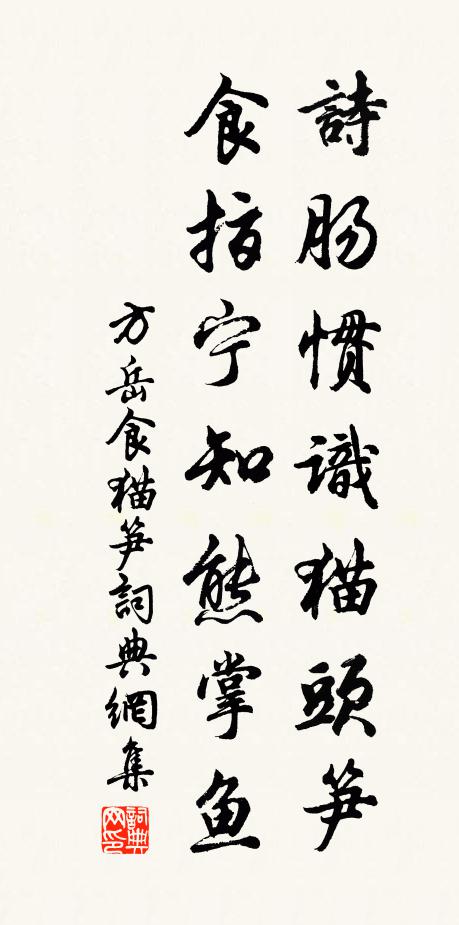 詩肠慣識猫頭笋
食指宁知熊掌鱼
方岳食猫笋詞典網集
詞典网印